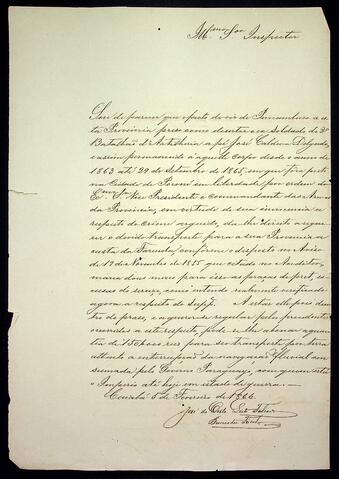 Illmo Snr Inspector
Sou de parecer que o facto de vir de Pernambuco a es-
ta Provincia preso como desertor o ex Soldado do 3º
Batalhão d'Artilheria a pé José Caldeira Delgado,
e assim permanecido áquelle corpo desde o anno de
1863 até 29 de Setembro de 1865, em que foi posto
na Cidade de em liberdade por ordem do
E. Snr Vice Presidente e commandante das Armas
da Provincia, em virtude de sua innocencia a
respeito do crime arguido, da-lhe direito a reque-
rer o devido transporte para a sua Provincia a
custa da Fazenda, conforme o disposto no Aviso
de 19 de Novembro de 1855 que citado no Auditor,
marca dous mezes para isso as praças de pret, es-
cusas do serviço, como intendo realmente verificado
agora a respeito do Supp.e A estar elle pois den-
tro do prazo, e a querendo regular pela precedente
occorridos a este respeito, pode se lhe abonar a quan-
tia de 150$000 reis para seu transporte por terra
attenta a interrupção da navegação fluvial em-
pelo Governo Paraguayo, com quem está
o Imperio até hoje em estado de guerra.
Cuiabá 5 de Fevereiro de 1866.
José de